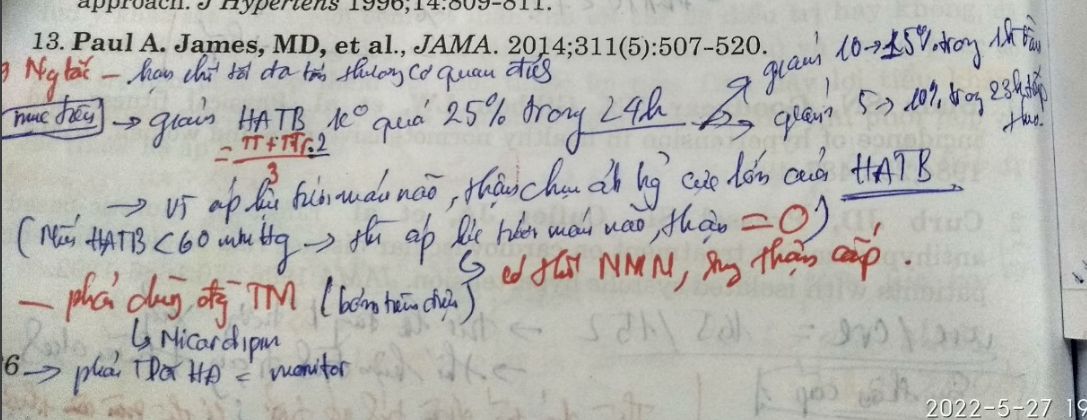 approach. J Hypertens 1996;14:809-811.
13. Paul A. James, MD, et al., JAMA. 2014;311(5):507-520.
giảm 10→15% trong 1h đầu
Ng tắc – hạn chế tối đa tổn thương cơ quan đích
mục tiêu → giảm HATB k° quá 25% trong 24h → giảm 5→10% trong 23h tiếp
theo.
= TT + TTr.2
3
→ vì áp lực tưới máu não, thận chịu ảh hg của HATB
(Nếu HATB < 60 mmHg → thì áp lực tưới máu não, thận = 0)
có thể NMN, suy thận cấp.
– phải dùng đg TM (bơm tiêm điện)
↳ Nicardipin
6 → phải TDõi HA = monitor
2022-5-27 19